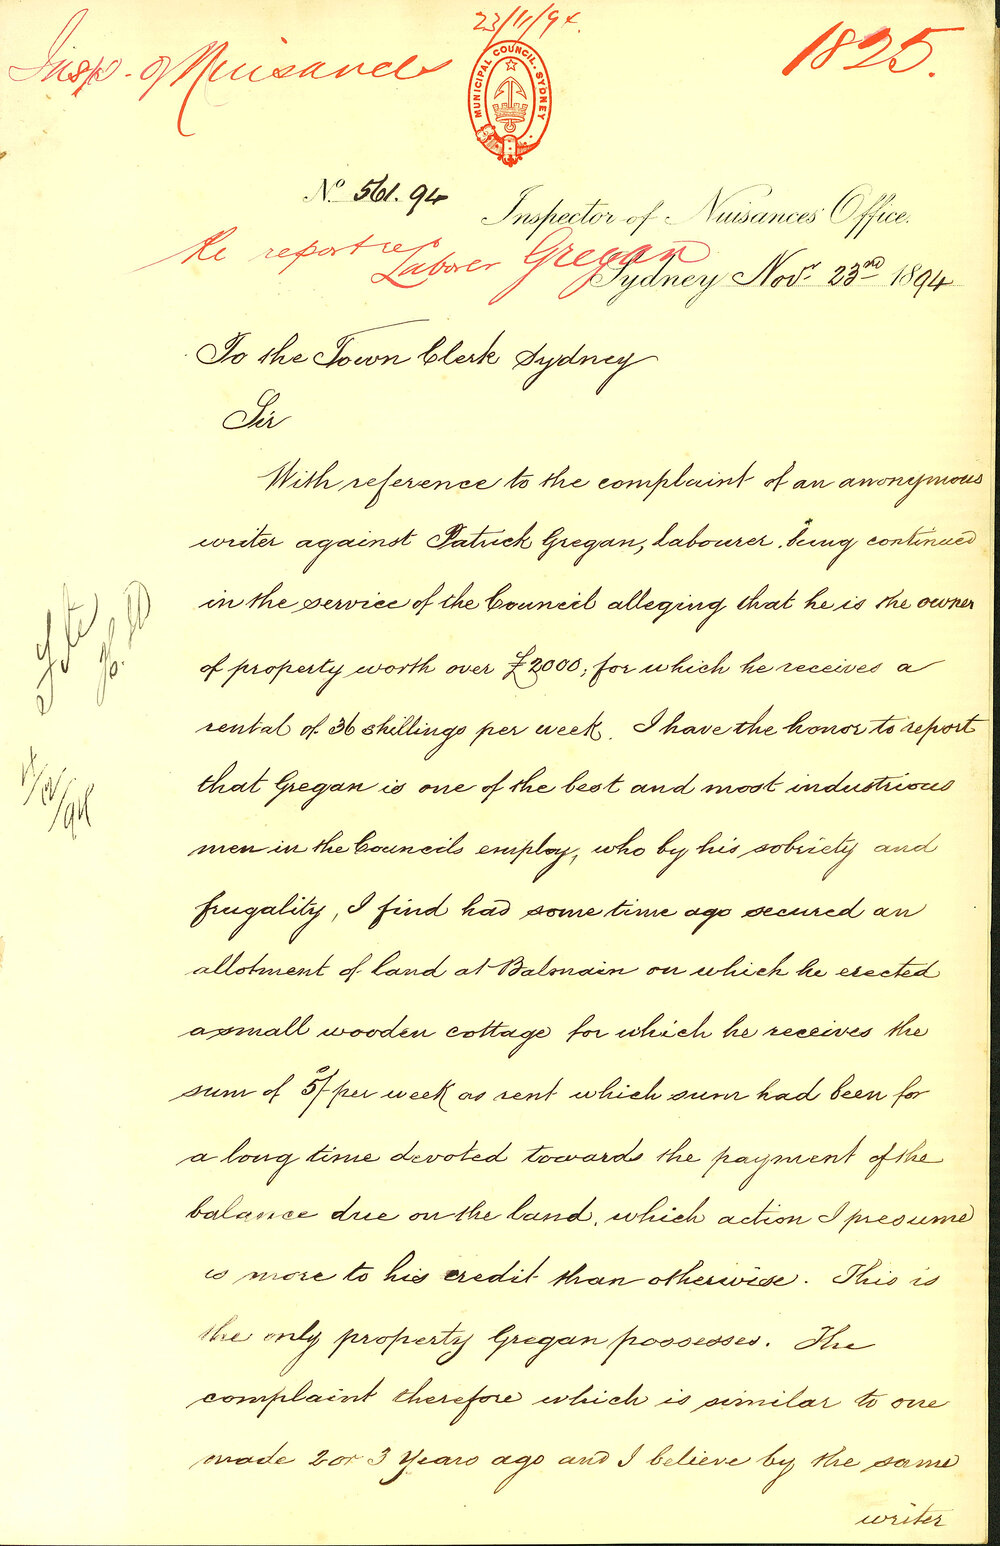 23/11/94.
Insp. of Nuisances
1825.
MUNICIPAL COUNCIL. SYDNEY
No 561. 94
Inspector of Nuisances' Office.
Re report re Laborer Gregan
Sydney Novr. 23rd 1894
To the Town Clerk Sydney
Sir
With reference to the complaint of an anonymous
writer against Patrick Gregan, Labourer, being continued
in the service of the Council alleging that he is the owner
of property worth over £2000, for which he receives a
rental of 36 shillings per week. I have the honor to report
that Gregan is one of the best and most industrious
men in the Councils employ, who by his sobriety and
frugality, I find had some time ago secured an
allotment of land at Balmain on which he erected
a small wooden cottage for which he receives the
sum of 5/ per week as rent which sum had been for
a long time devoted towards the payment of the
balance due on the land, which action I presume
is more to his credit than otherwise. This is
the only property Gregan possesses. The
complaint therefore which is similar to one
made 2 or 3 years ago and I believe by the same
writer
4/12/94